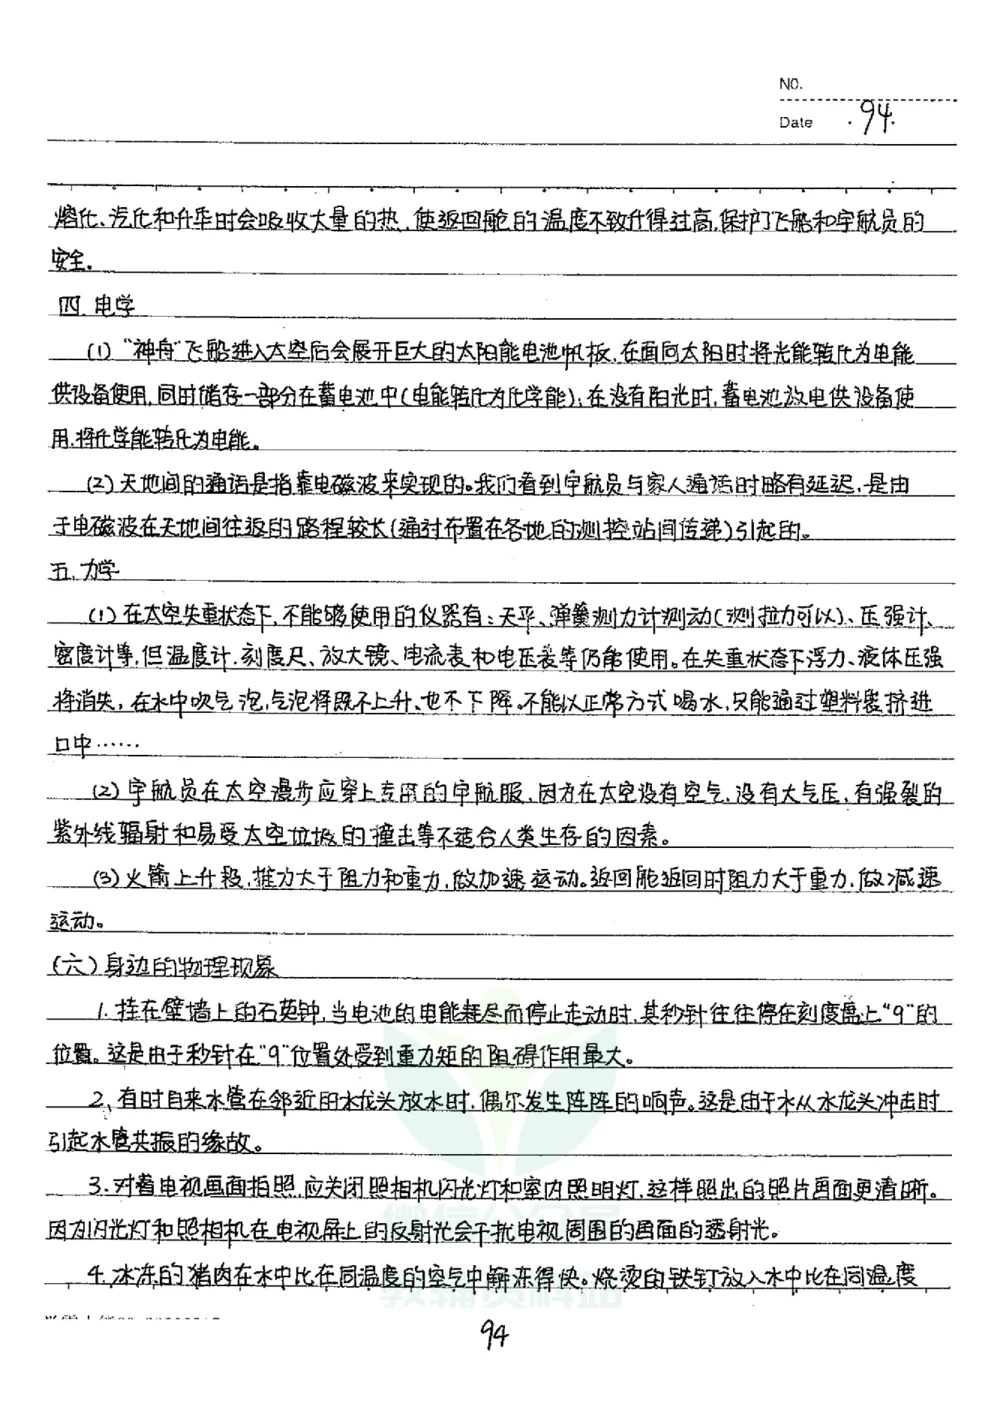 NO.
Date 94.
熔化、汽化和升华时会吸收大量的热,使返回舱的温度不致升得过高,保护了飞船和宇航员的
安全.
四.电学
(1)"神舟"飞船进入太空后会展开巨大的太阳能电池帆板,在面向太阳时将光能转化为电能
供设备使用,同时储存一部分在蓄电池中(电能转化为化学能);在没有阳光时,蓄电池放电供设备使
用,将化学能转化为电能。
(2)天地间的通话是指靠电磁波来实现的。我们看到宇航员与家人通话时略有延迟,是由
于电磁波在天地间往返的路程较长(通过布置在各地的测控站间传递)引起的。
五.力学
(1)在太空失重状态下,不能够使用的仪器有:天平、弹簧测力计测动(测拉力可以)、压强计、
密度计等,但温度计.刻度尺、放大镜、电流表和电压表等仍能使用。在失重状态下浮力、液体压强
将消失,在水中吹气泡,气泡将既不上升、也不下降。不能以正常方式喝水,只能通过塑料袋挤进
口中……
(2)宇航员在太空漫步应穿上专用的宇航服,因为在太空没有空气,没有大气压,有强裂的
紫外线辐射和易受太空垃圾的撞击等不适合人类生存的因素。
(3)火箭上升段,推力大于阻力和重力,做加速运动。返回舱返回时阻力大于重力,做减速
运动。
(六)身边的物理现象
1.挂在壁墙上的石英钟,当电池的电能耗尽而停止走动时,其秒针往往停在刻度盘上"9"的
位置。这是由于秒针在"9"位置处受到重力矩的阻碍作用最大。
2,有时自来水管在邻近的水龙头放水时,偶尔发生阵阵的响声。这是由于水从水龙头冲击时
引起水管共振的缘故。
3.对着电视画面拍照,应关闭照相机闪光灯和室内照明灯,这样照出的照片画面更清晰。
因为闪光灯和照相机在电视屏上的反射光会干扰电视周围的画面的透射光。
4,冰冻的猪肉在水中比在同温度的空气中解冻得快。烧烫的铁钉放入水中比在同温度
教辅资料站
94